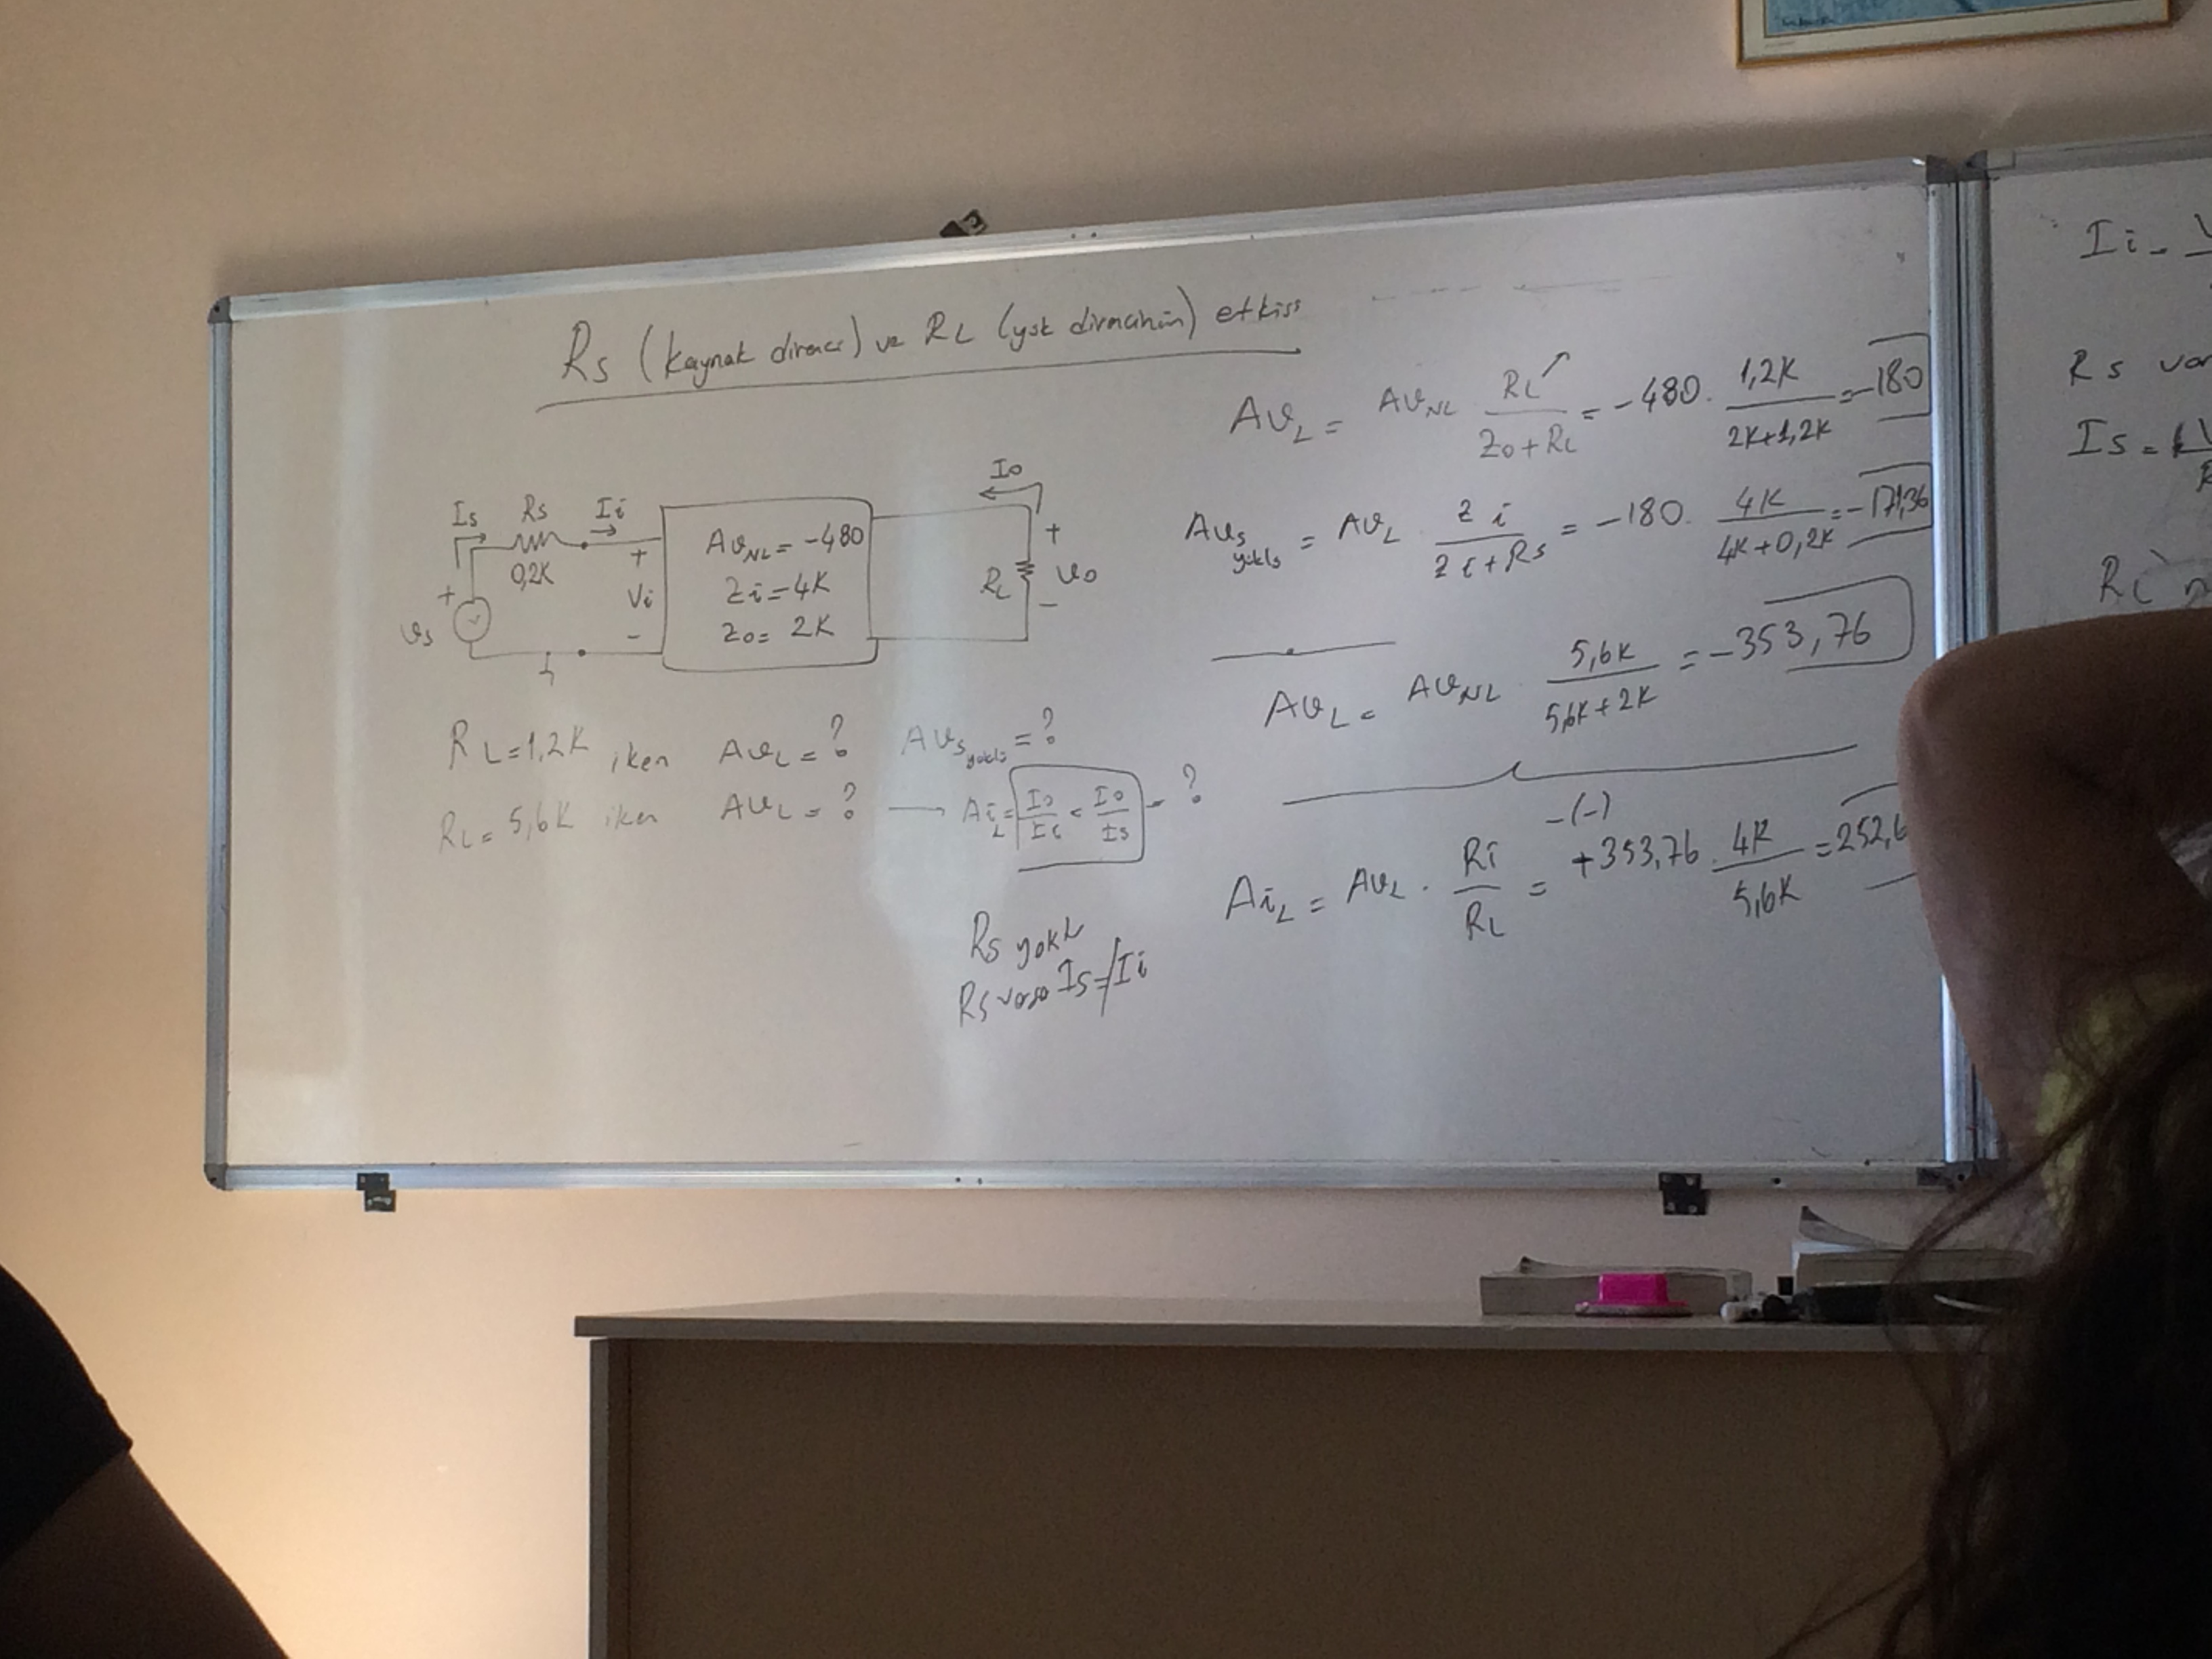 Rs (kaynak direnci) ve RL (yük direncinin) etkisi
Is Rs Ii
0,2K
+ Vi -
+ vs
AvNL = -480
Zi = 4K
Zo = 2K
Io
RL + vo -
RL = 1,2K iken AvL = ? Avs yüklü = ?
RL = 5,6K iken AvL = ? → AiL = Io/Ii = Io/Is = ?
Rs yokk
Rs varsa Is = Ii
AvL = AvNL RL/(Zo + RL) = -480 . 1,2K/(2K+1,2K) = -180
Avs yüklü = AvL . Zi/(Zi + Rs) = -180 . 4K/(4K+0,2K) = -171,36
AvL = AvNL . 5,6K/(5,6K+2K) = -353,76
-(-)
AiL = AvL . Ri/RL = +353,76 . 4K/5,6K = 252,6
Ii =
Rs var
Is =
RL